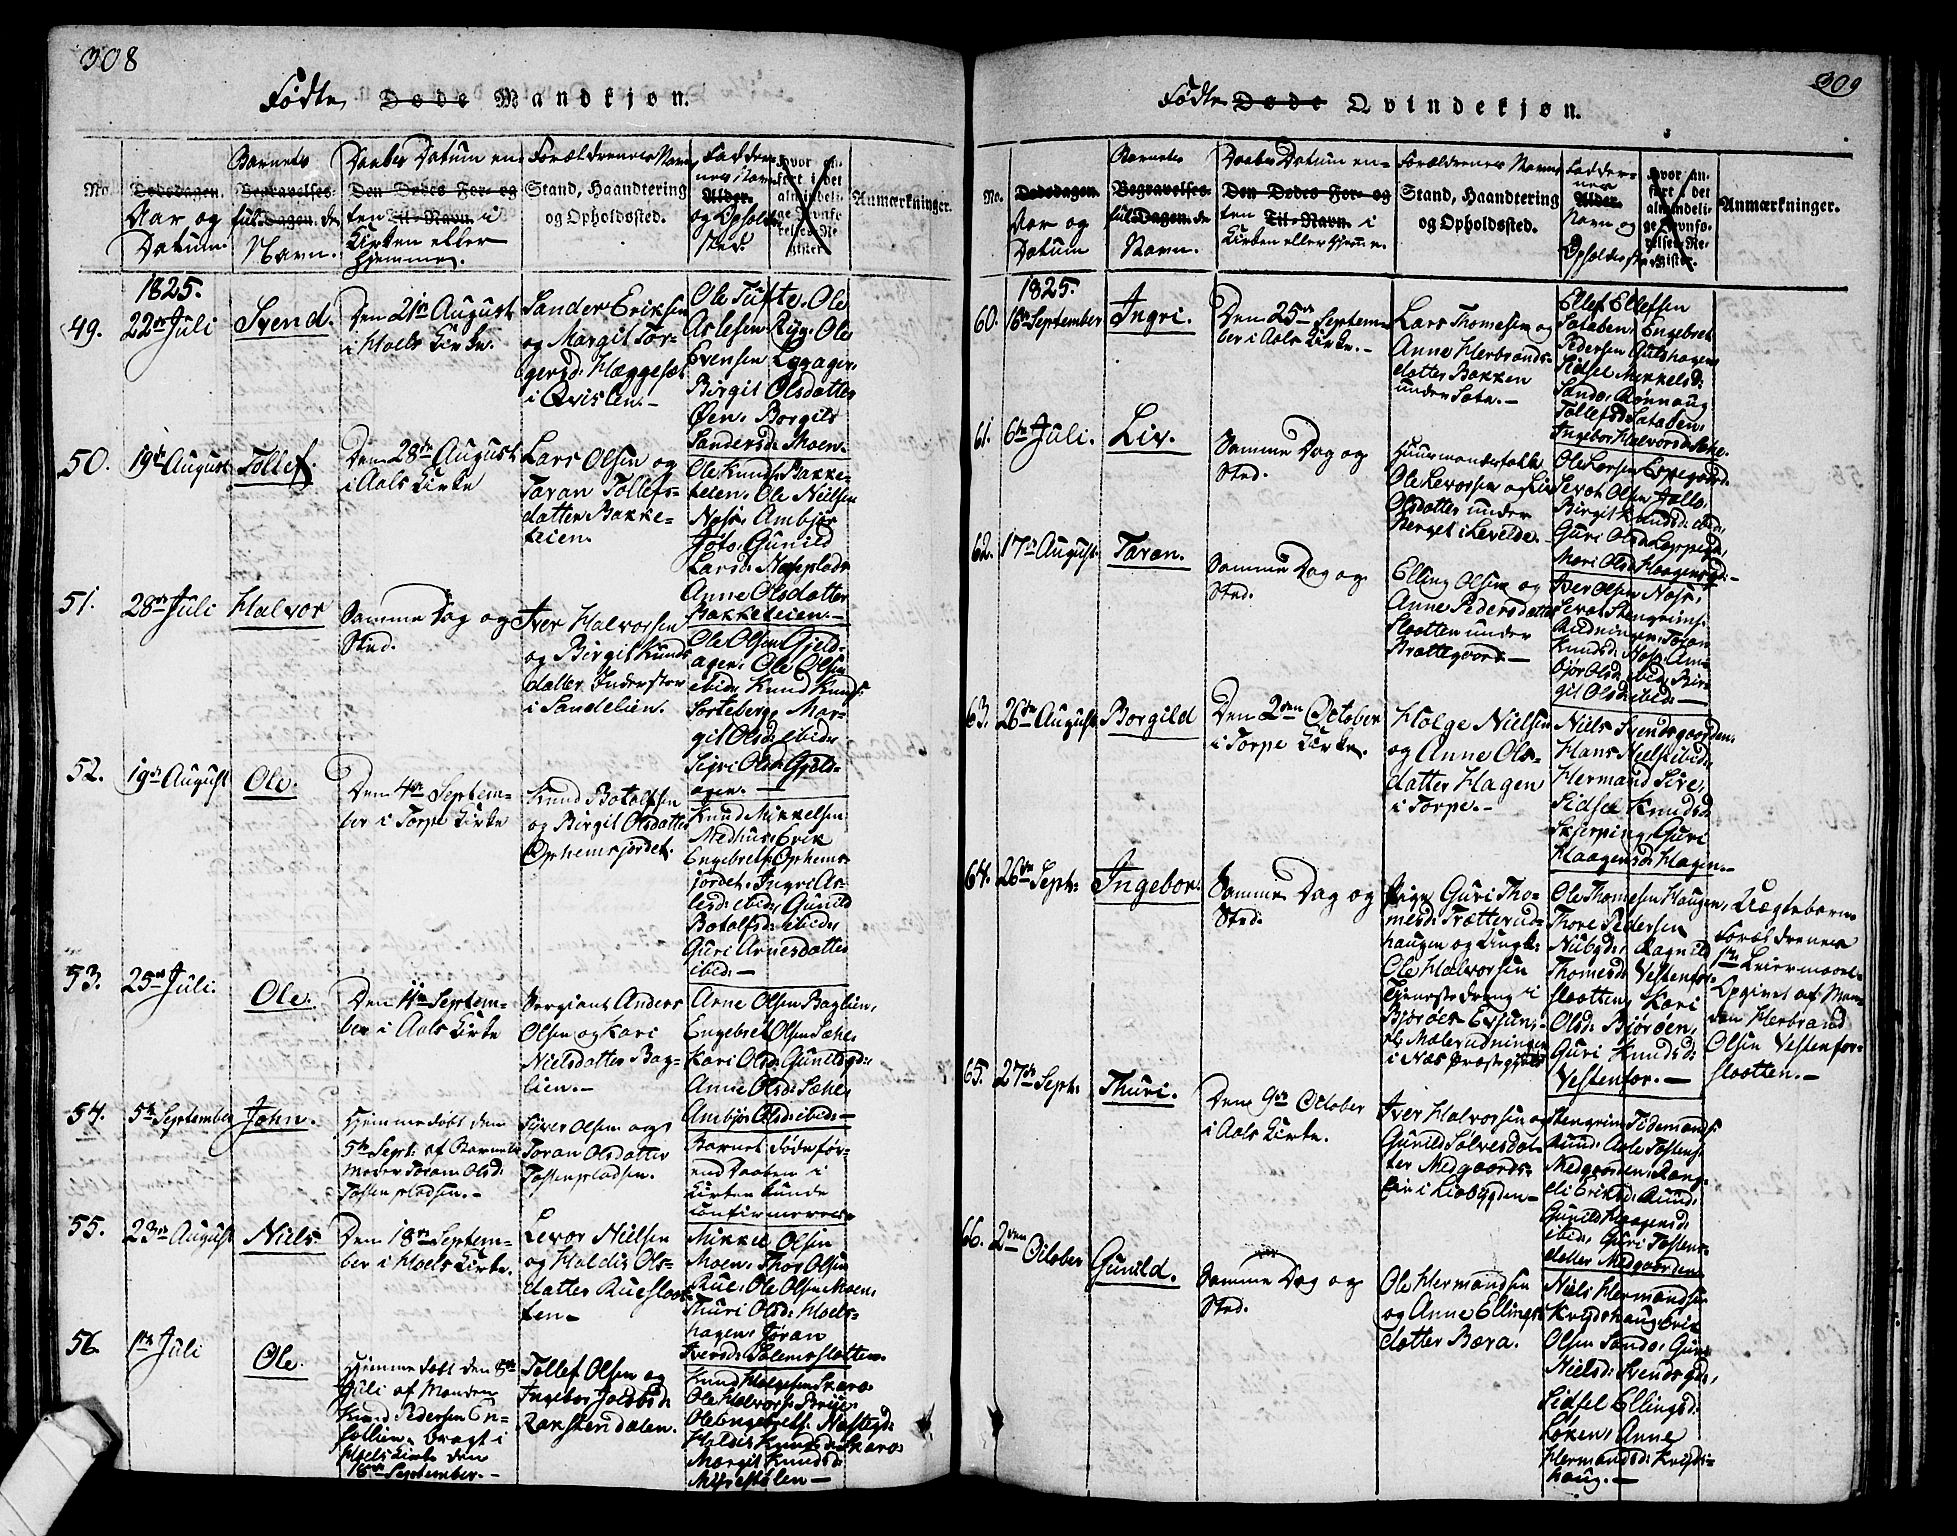 308
Fødte Døde Mandkjøn.
No.
Dødsdagen.
Aar og
Datum.
Barnets
Begravelses-
ful Dagen. de
Navn.
Daabes Datum en-
Den Dødes For- og
ten Til-Navn i
Kirken eller
hjemme.
Forældrenes Navn
Stand, Haandtering
og Opholdssted.
Fadder-
nes Navn
Alder.
og Opholds
sted
Hvor an-
ført i det
almindeli-
ge Jevnfø-
relses-Re-
gister.
Anmærkninger.
1825.
49. 22de Juli
Svend.
Den 21de August
i Hoels Kirke.
Sander Eriksen
og Margit Tor-
gersd: Heggeset
i Qvislen.-
Ole Tufte, Ole
Aslesen Ryg, Ole
Evensen Lygager,
Birgit Olsdatter
Øen, Borgild
Sandersd: Moen.
50. 19de August
Tollef.
Den 28de August
i Aals Kirke
Lars Olsen og
Taran Tollefs-
datter Bakke-
teien.
Ole Knuds: Bakke-
teien, Ole Nielsen
Nos, Ambjør
Gunild
Larsd: Noss plads
Anne Olsdatter
Bakketeien.-
51. 28de Juli
Halvor
Samme Dag og
Sted.
Iver Halvorsen
og Birgit Knuds
datter
i Sundelien.
Ole Olsen Gjeld-
agen, Ole Olsen
ibid, Knud Knuds:
Sorteberg, Mar-
git Olsd: ibid:
Sigri Olsd: Gjeld-
agen.
52. 19de August
Ole.
Den 4de Septem-
ber i Torpe Kirke
Knud Botolfsen
og Birgit Olsdatter
Opheimsjordet.
Knud Mikkelsen
Medhus, Erik
Engebrets: Ophems-
jordet, Ingri As-
lesd: ibid, Gunild
Botolfsd: ibid,
Guri Arnesdatter
ibid: -
53. 25de Juli.
Ole.
Den 11te Septem-
ber i Aals Kirke
Sergiant Anders
Olsen og Kari
Nielsdatter Bag-
lien.-
Arne Olsen Baglien,
Engebret Olsen Sæhe
Kari Olsd: Gunildsgd:
Anne Olsd: Sæhe,
Ambjør Olsd: ibid: -
54. 5te September
John.
Hjemmedøbt den
5te Sept: af Barnets
Moder Toran Olsd:
Tostenpladsen.-
Siver Olsen og
Toran Olsdatter
Tostenpladsen.
Barnet døde før-
end Daaben i
Kirken kunde
confirmeres.
55. 23de August
Niels
Den 18de Septem-
ber i Hoels Kirke.
Levor Nielsen
og Haldis Ols-
datter Rueslaat-
ten-
Mikkel Olsen
Moen, Thor Olsen
Rue, Ole Olsen Moen,
Thuri Olsd: Hoels-
hagen, Jøran
Iversd: Solemslatten.
56. 1ste Juli
Ole.
Hjemmedøbt den 8de
Juli af Manden
Knud Pedersen En-
, bragt i
Hoels Kirke den
18de September.-
Tollef Olsen og
Ingebor
Karstendalen.
Knud Helgesen Skarø
Ole Halvors:
Ole Engebrets:
Haldis Knudsd: Skarø
Margit Knudsd:
309
Fødte Døde Qvindekjøn.
No.
Dødsdagen.
Aar og
Datum
Barnets
Begravelses-
ful Dagen. de
Navn.
Daabes Datum en-
Den Dødes For- og
ten Til-Navn i
Kirken eller hjemme.
Forældrenes Navn,
Stand, Haandtering
og Opholdssted.
Fadder-
nes
Alder.
Navn og
Opholdssted
Hvor an-
ført i det
almindeli-
ge Jevnfø-
relses-Re-
gister.
Anmærkninger.
1825.
60. 16de September
Ingri.
Den 25de Septem-
ber i Aals Kirke.-
Lars Thomesen og
Anne Herbrands-
datter Bakken
under Sata.-
Ellef Ellefsen
Sataben, Engebret
Pedersen
Sidsel Mikkelsd:
Sando, Rønnaug
Tollefsd: Sataben,
Ingebor Halvorsd:
61. 6te Juli.
Liv.
Samme Dag og
Sted.
Huusmandsfolk
Ole Levorsen og Liv
Olsdatter under
Berget i Levelde.
Ole Larsen Espegaard
Levor Olsen
Birgit Knudsd: ibid,
Guri Olsd:
Mari Olsd: -
62. 17de August.
Taran.
Samme Dag og
Sted.
Elling Olsen og
Anne Pedersdatter
Slaatten under
Brattegaard.-
Iver Olsen Nos,
Levor Stengrims:
Rudningen, Toran
Knudsd: Nos, Am-
bjør Olsd: ibid: Bir-
git Olsd: ibid: -
63. 26de August
Borgild
Den 2den October
i Torpe Kirke.
Holge Nielsen
og Anne Ols-
datter Hagen
i Torpe.-
Niels Svendsgaarden,
Hans Niels: ibid,
Hermand Sire,
Sidsel Knudsd:
Skjerping, Guri
Haagensd: Hagen.-
64. 26de Sept:
Ingebor.
Samme Dag og
Sted.
Pige Guri Tho-
mesd: Trætterud-
haugen og Ungk:
Ole Halvorsen
Tjenestedreng i
Bjørøe
i Næs Præstegjeld
Ole Thomesen Haugen,
Thore Pedersen
Nubgd: Ragnild
Thomesd: Vestenfor-
slaatten, Kari
Olsd: Bjørøen,
Guri Knudsd:
Vestenfor.-
Uægtebarn
Forældrenes
1ste Leiermaal.
Opgivet af Man-
den Herbrand
Olsen Vestenfor-
slaatten.-
65. 27de Sept:
Thuri.
Den 9de October
i Aals Kirke.
Iver Halvorsen og
Gunild Sølvesdat-
ter Medgaards-
eie i Liabygden-
Stengrim Tidemands:
Aasle Tostens:
Medgaarden, Ran-
di Eriksd:
Gunild Haagensd:
ibid, Guri Tostens-
datter Medgaarden
66. 2den October
Gunild.
Samme Dag og
Sted.
Ole Hermandsen
og Anne Ellings-
datter Bæra.
Niels Hermandsen
Erik
Olsen Sando, Guri
Nielsd: Svendsgd:,
Sidsel Ellingsd:
Løken, Anne
Hermandsd:
haug.-